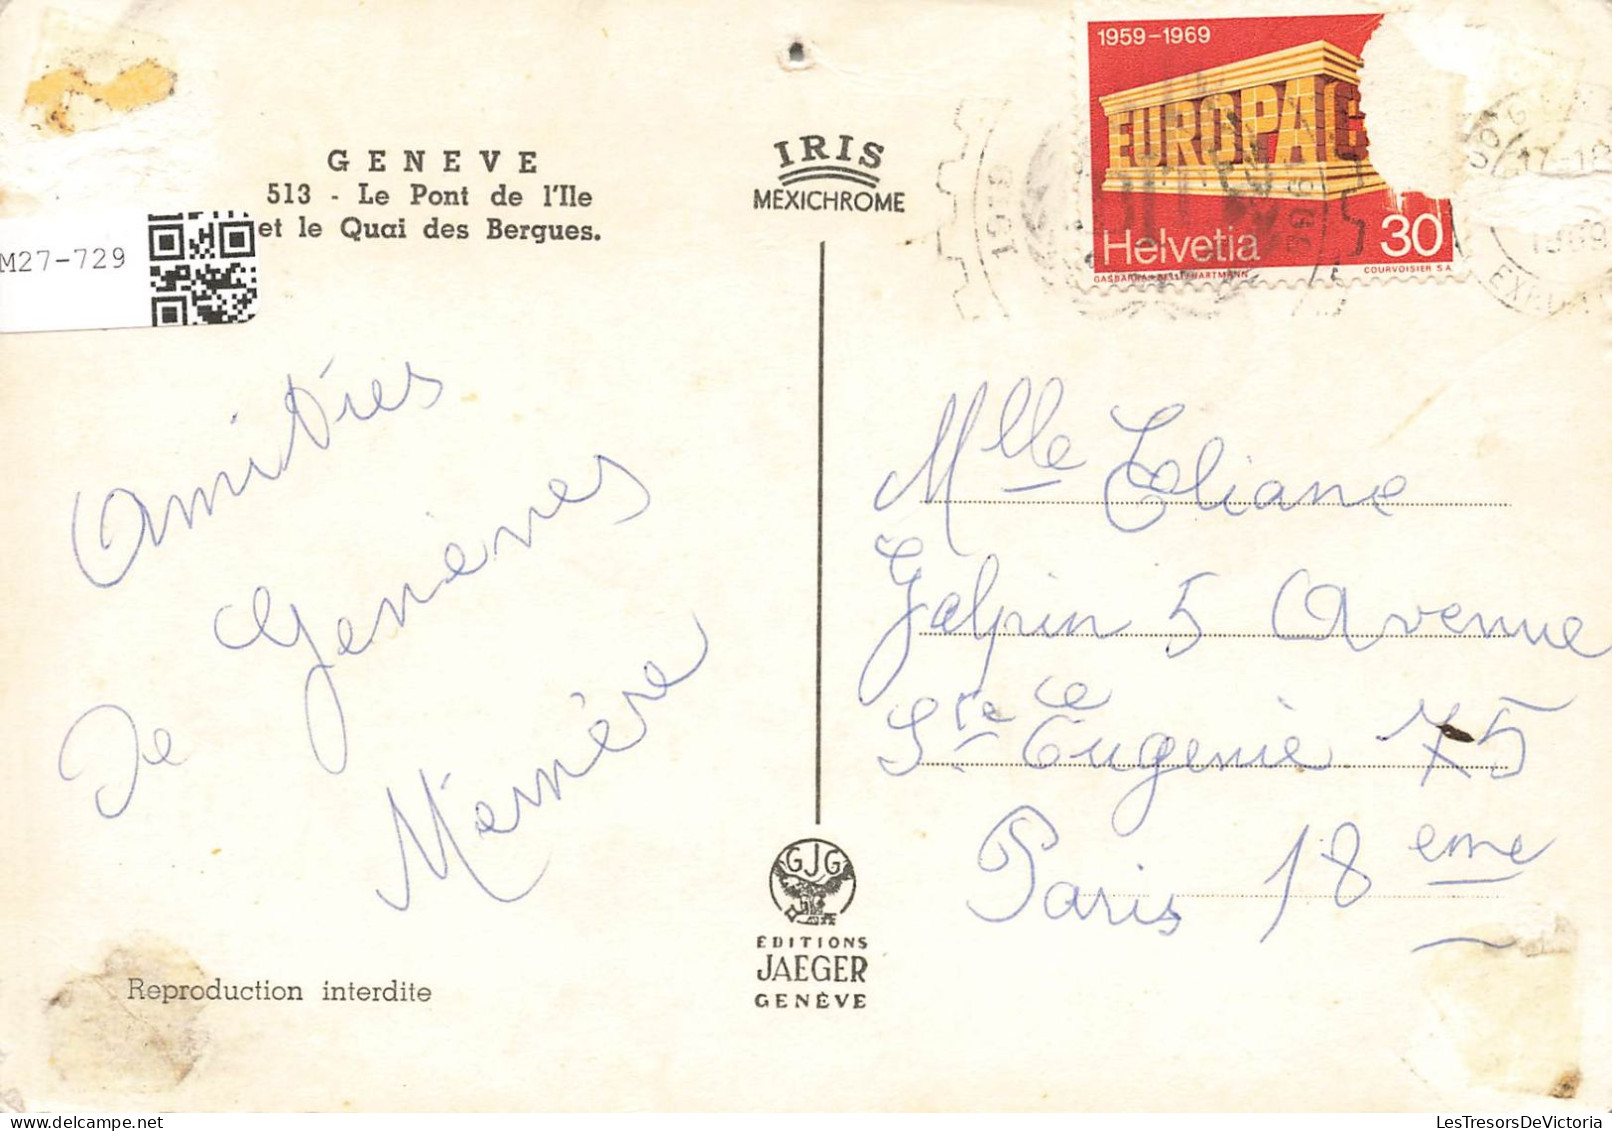 GENEVE
513 - Le Pont de l'Ile
et le Quai des Bergues.
M27-729
IRIS
MEXICHROME
1959-1969
EUROPA C
Helvetia 30
GASBARRA-BELLI-HARTMANN
COURVOISIER S.A.
17-18
Amitiés
de Genèves
Mémère
Mlle Eliane
Galpin 5 Avenue
Ste Eugenie 75
Paris 18 eme
GJG
ÉDITIONS
JAEGER
GENÈVE
Reproduction interdite
LesTresorsDeVictoria.com